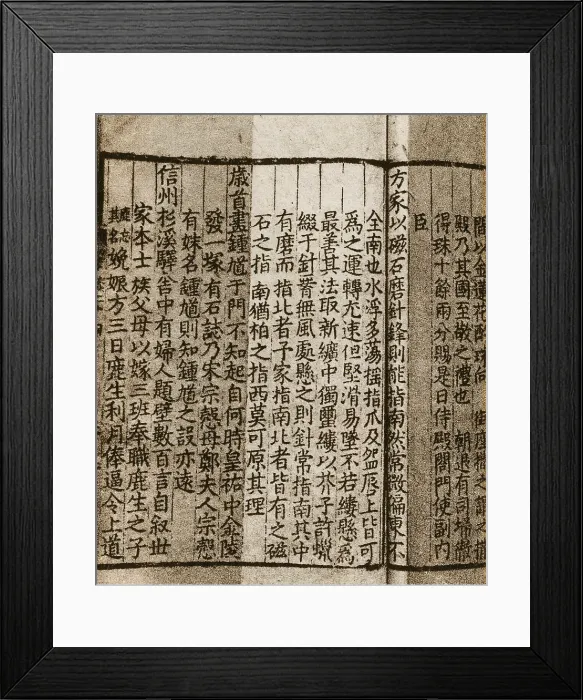 間以金蓮花酌珠向 御座撒之謂之撒
殿乃其國至敬之禮也 朝退有司掃徹
得珠十餘兩分賜是日侍殿閤門使副內
臣
方家以磁石磨針鋒則能指南然常微偏東不
全南也水浮多蕩搖指爪及盌唇上皆可
爲之運轉尤速但堅滑易墜不若縷懸爲
最善其法取新纊中獨蠒縷以芥子許蠟
綴于針腰無風處懸之則針常指南其中
有磨而指北者予家指南北者皆有之磁
石之指南猶柏之指西莫可原其理
歲首畫鍾馗于門不知起自何時皇祐中金陵
發一塚有石誌乃宋宗愨母鄭夫人宗愨
有妹名鍾馗則知鍾馗之設亦遠
信州杉溪驛舍中有婦人題壁數百言自叙世
家本士族父母以嫁三班奉職鹿生之子
鹿忘其名娩娠方三日鹿生利月俸逼令上道